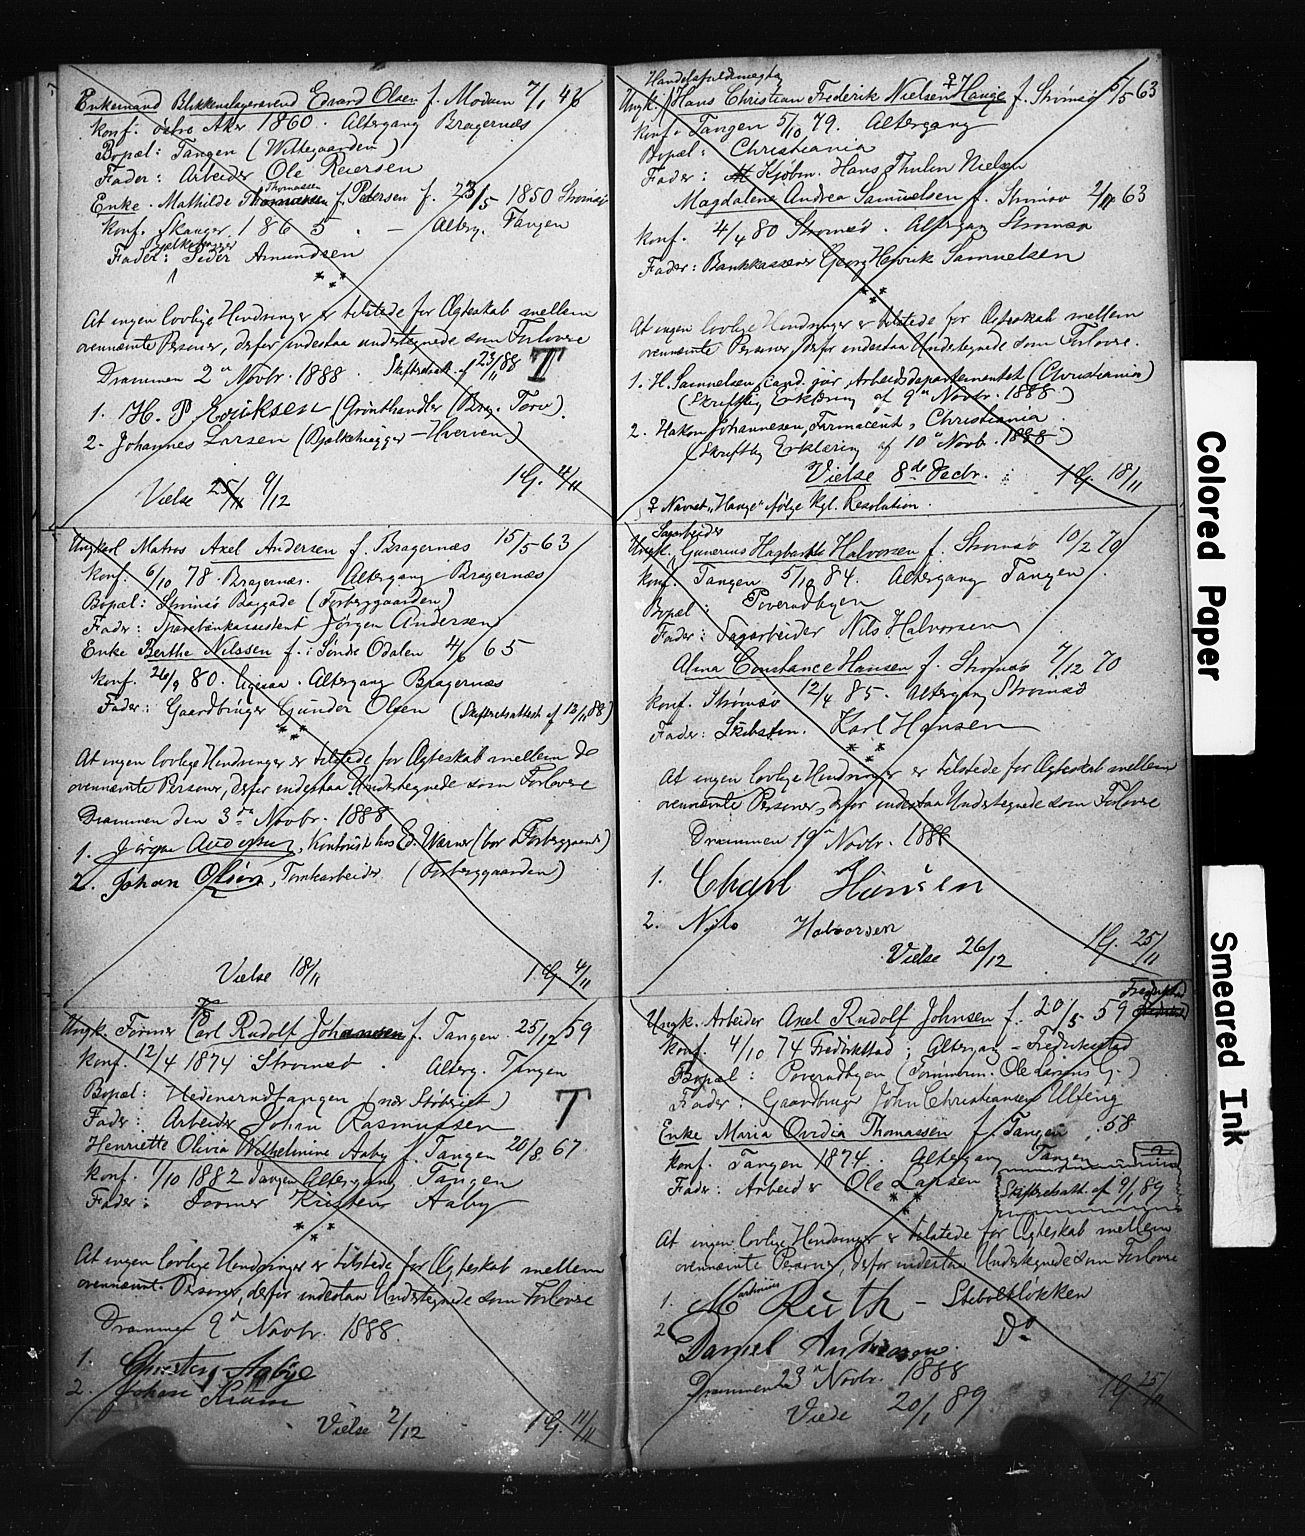 Enkemand Blikkenslagersvend Evard Olsen f. Modum 7/1 46
Konf. østre Aker 1860. Altergang Bragernæs
Bopæl: Tangen (Wiltegaarden)
Fader: Arbeider Ole Reiersen
Thomassen
Enke. Mathilde f. Petersen f. 23/5 1850 Strømsø
Konf. Skanger 1865. — Alterg. Tangen
Fader: Peder Amundsen
At ingen lovlige Hindringer er tilstede for Ægteskab mellem
ovennævnte Personer, derfor indestaa undertegnede som Forlovere
Drammen 2den Novbr. 1888. Skifteretsatt. af 23/11 88 T
1. H. P. Eriksen (Grønthandler Brag. Torv).
2. Johannes Larsen (Bjelkehugger – Hverven)
Vielse 25/11 9/12 1 G. 4/11
Ungkarl Matros Axel Andersen f. Bragernæs 15/5 63
Konf. 6/10 78 Bragernæs. Altergang Bragernæs
Bopæl: Strømsø Baggade (Forberggaarden)
Fader: Sparebankassistent Jørgen Andersen
Enke Berthe Nilssen f. i Søndre Odalen 4/6 65
Konf. 26/9 80. Altergang Bragernæs
Fader: Gaardbruger Gunder Olsen (Skifteretsattest af 13/11 88)
At ingen lovlige Hindringer er tilstede for Ægteskab mellem de
ovennævnte Personer, derfor indestaa Undertegnede som Forlovere
Drammen den 3die Novbr. 1888
1. Jørgen Andersen, Kontorist hos Ed. Warner (bor Forberggaarden)
2. Johan Olsen, Tomtearbeider (Forberggaarden)
Vielse 18/11 1 G. 4/11
Ungk. Former Carl Rudolf Johansen f. Tangen 25/12 59
Konf. 12/4 1874 Strømsø. Alterg. Tangen
Bopæl: Hedensrudtangen (nær Støberiet) T
Fader: Arbeider Johan Rasmussen
Henriette Olivia Wilhelmine Aaby f. Tangen 20/8 67
Konf. 1/10 1882 Tangen Altergang Tangen
Fader: Former Kristen Aaby
At ingen lovlige Hindringer er tilstede for Ægteskab mellem
ovennævnte Personer, derfor indestaa Undertegnede som Forlovere
Drammen 9de Novbr. 1888.
1. Christen Aabye
2. Johan
Vielse 2/12 1 G. 11/11
Handelsfuldmægtig
Ungk. Hans Christian Frederik Nielsen Hauge f. Strømsø 6/5 63
Konf. Tangen 5/10 79. Altergang
Bopæl: Christiania
Fader: Kjøbm. Hans Thulin Nielsen
Magdalene Andrea Samuelsen f. Strømsø 2/11 63
Konf. 4/4 80 Strømsø. Altergang Strømsø
Fader: Bankkasserer Georg Henrik Samuelsen
At ingen lovlige Hindringer er tilstede for Ægteskab mellem
ovennævnte Personer, derfor indestaa Undertegnede som Forlovere.
1. H. Samuelsen, cand. jur. Arbeidsdepartementet (Christiania)
(Skriftlig Erklæring af 9de Novbr. 1888)
2. Hakon Johannesen, Farmaceut, Christiania
(Skriftlig Erklæring af 10de Novb. 1888)
Vielse 8de Decbr. 1 G. 18/11
Navnet "Hauge" ifølge Kgl. Resolution.
Sagarbeider
Ungk. Gunerius Hagbarth Halvorsen f. Strømsø 10/2 70
Konf. Tangen 5/10 84. Altergang Tangen
Bopæl: Poverudbyen
Fader: Sagarbeider Nils Halvorsen
Alma Constance Hansen f. Strømsø 7/12 70
Konf. Strømsø 12/4 85. Altergang Strømsø
Fader: Skibstøm. Karl Hansen
At ingen lovlige Hindringer er tilstede for Ægteskab mellem
ovennævnte Personer, derfor indestaa Undertegnede som Forlovere
Drammen 19de Novbr. 1888
1. Charl Hansen
2. Nils Halvorsen
Vielse 26/12 1 G. 25/11
Ungk. Arbeider Axel Rudolf Johnsen f. 20/5 59 Fredrikstad
Konf. 4/10 74 Fredrikstad; Altergang – Fredrikstad
Bopæl: Poverudbyen (Tømmerm. Ole Larsens G.)
Fader: Gaardbruger John Christiansen
Enke Maria Ovidia Thomassen f. Tangen 58
Konf. Tangen 1874. Altergang Tangen
Fader: Arbeider Ole Larsen Skifteretsatt. af 9/1 89
At ingen lovlige Hindringer er tilstede for Ægteskab mellem
ovennævnte Personer, derfor indestaa Undertegnede som Forlovere
1. Martinius Ruth – Stibolt­løkken
2. Daniel Andersen Do
Drammen 23de Novbr. 1888 1 G. 25/11
Viede 20/1 89
Colored Paper
Smeared Ink